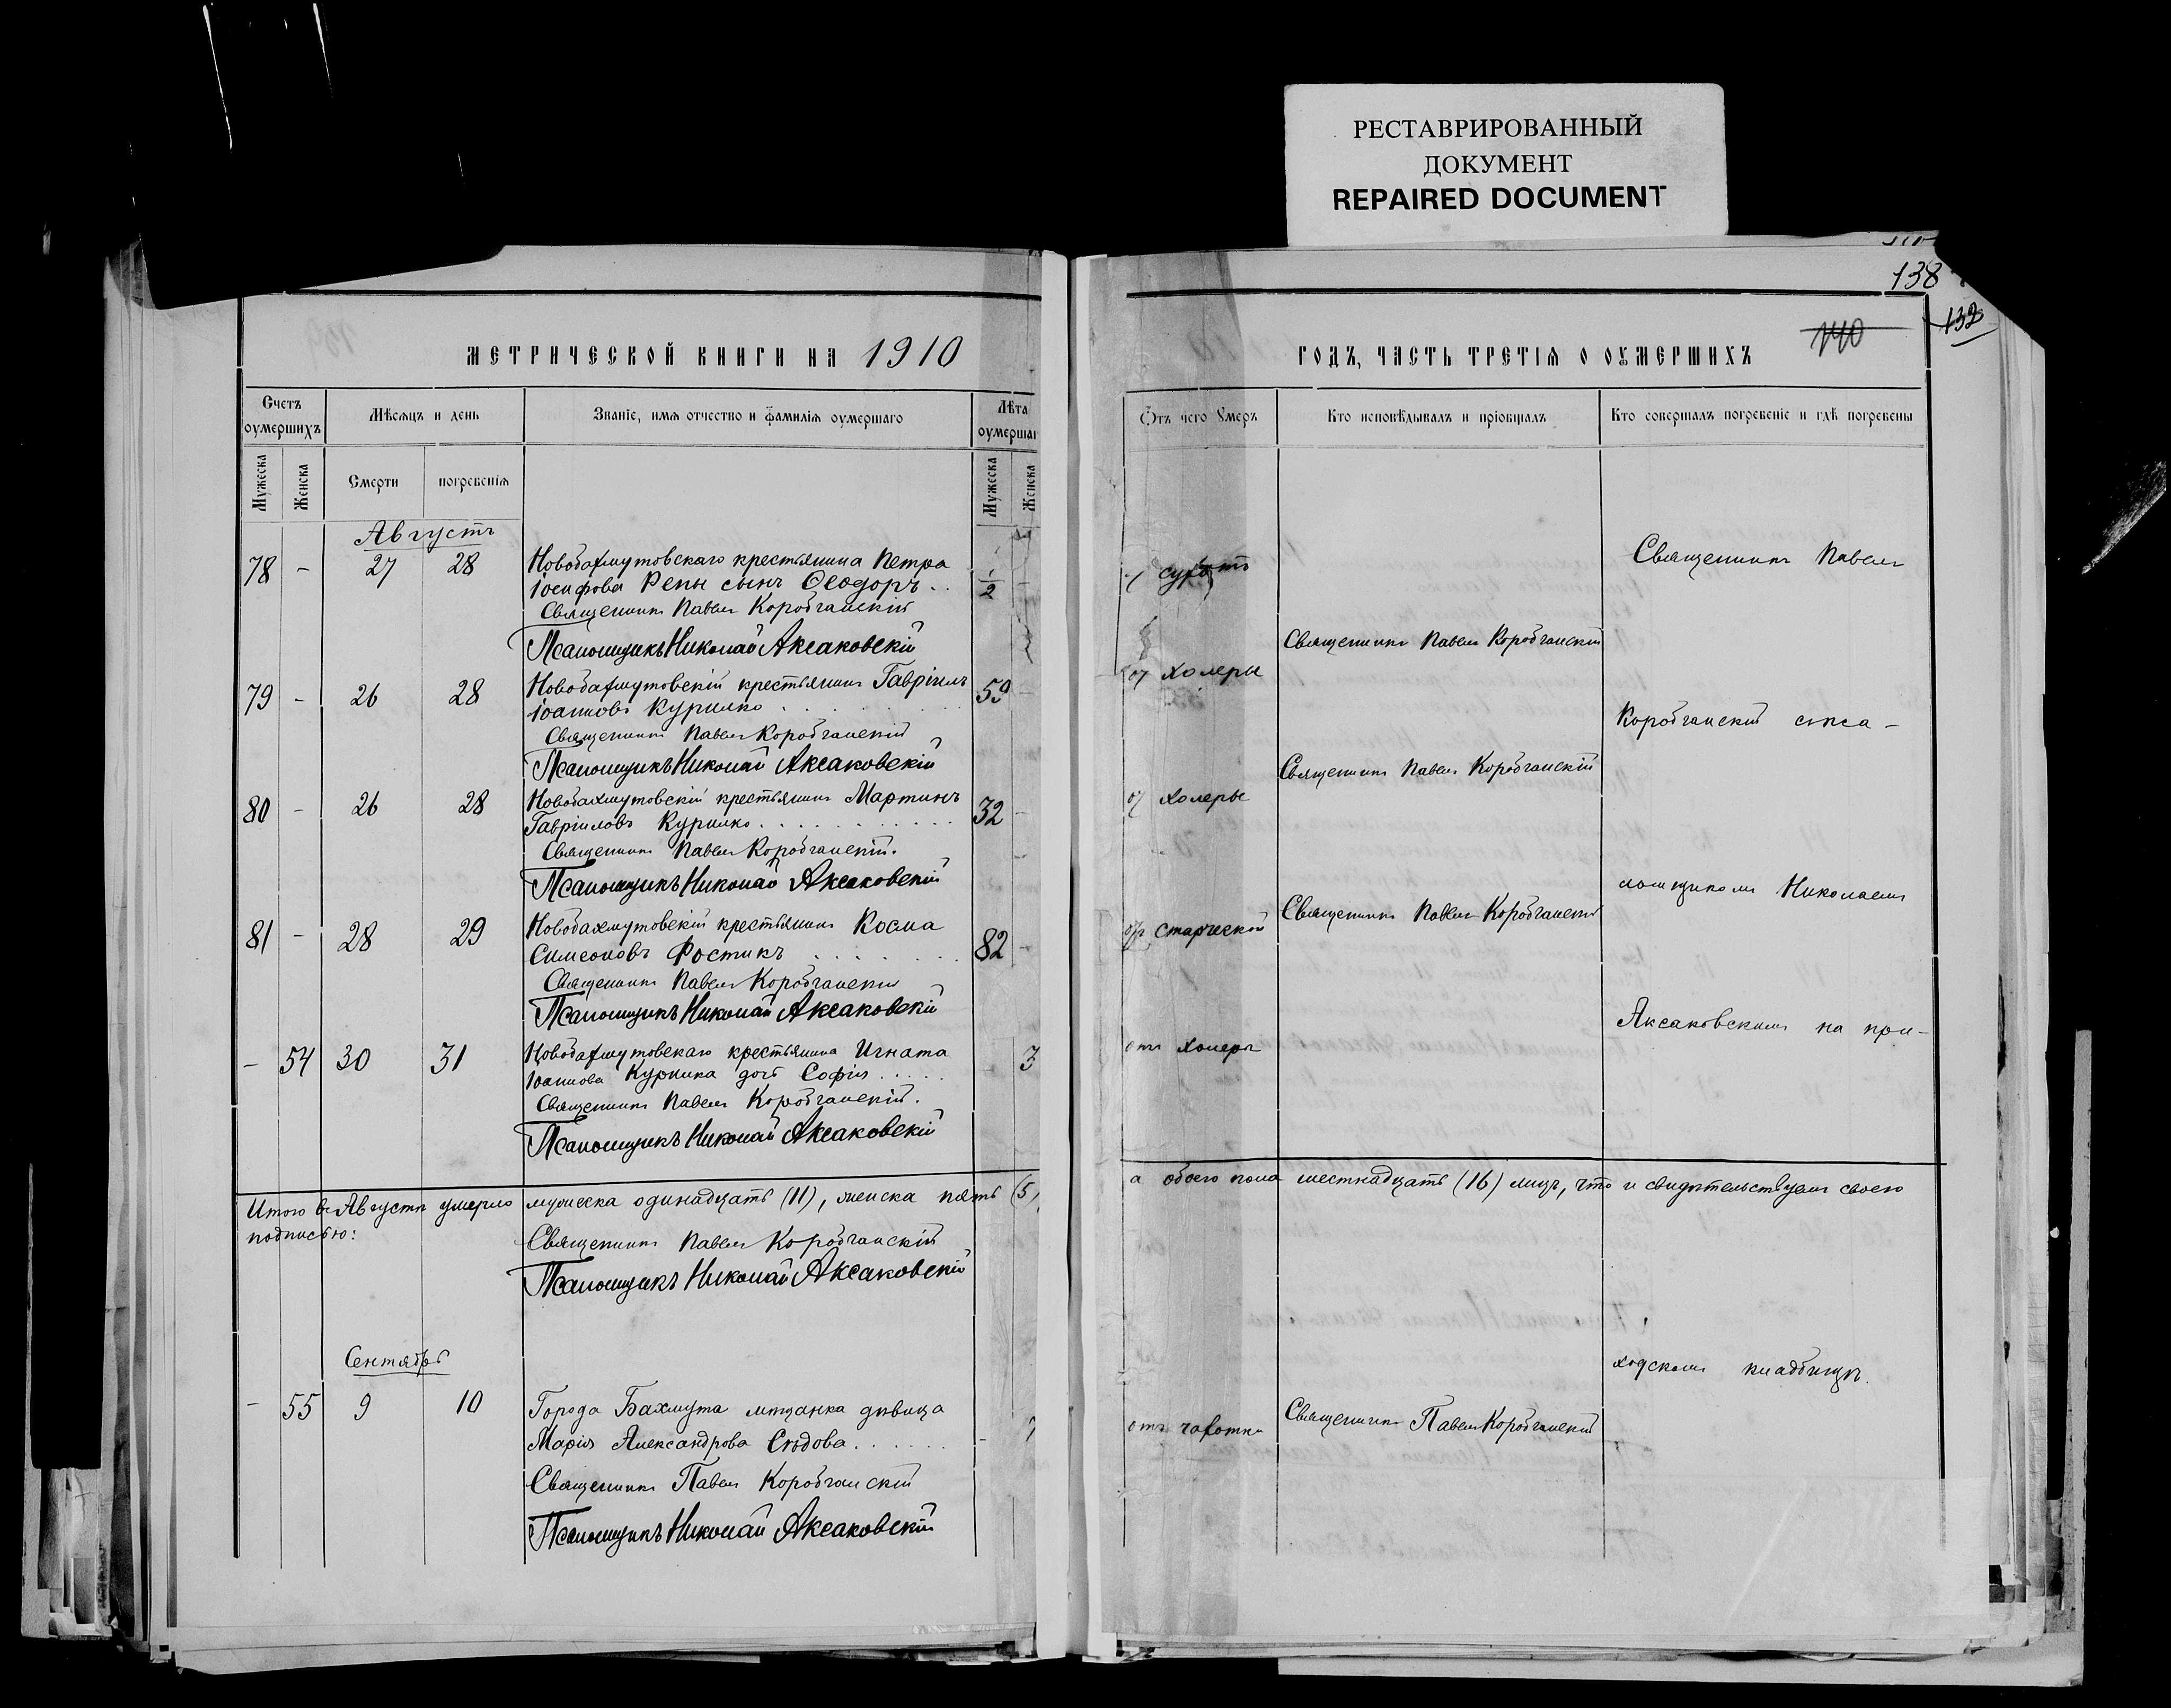 РЕСТАВРИРОВАННЫЙ
ДОКУМЕНТ
REPAIRED DOCUMENT
138
132
140
МЕТРИЧЕСКОЙ КНИГИ НА 1910
ГОДЪ, ЧАСТЬ ТРЕТІѦ О ОУМЕРШИХЪ
Счетъ оумершихъ
Мѣсяцъ и день
Званіе, имѧ отчество и фамиліѧ оумершаго
Лѣта оумершаг
Отъ чего Умеръ
Кто исповѣдывалъ и пріобщалъ
Кто совершалъ погребеніе и гдѣ погребены
Мужеска
Женска
Смерти
погребеніѧ
Мужеска
Женска
Августъ
78 - 27 28 Новобахмутовскаго крестьянина Петра
Іосифова Репы сынъ Ѳеодоръ . . 1/2 -
Священникъ Павелъ Коробчанскій
Псаломщикъ Николай Аксаковскій
79 - 26 28 Новобахмутовскій крестьянинъ Гавріилъ 59 - холеры
Іоанновъ Курилко
Священникъ Павелъ Коробчанскій
Псаломщикъ Николай Аксаковскій
Священникъ Павелъ Коробчанскій
80 - 26 28 Новобахмутовскій крестьянинъ Мартинъ 32 - холеры
Гавріиловъ Курилко
Священникъ Павелъ Коробчанскій.
Псаломщикъ Николай Аксаковскій
Священникъ Павелъ Коробчанскій
81 - 28 29 Новобахмутовскій крестьянинъ Косма старческой
Симеоновъ Фостикъ 82 -
Священникъ Павелъ Коробчанскій
Псаломщикъ Николай Аксаковскій
Священникъ Павелъ Коробчанскій
- 54 30 31 Новобахмутовскаго крестьянина Игната 3 отъ холеры
Іоаннова Курилка дочь Софія
Священникъ Павелъ Коробчанскій.
Псаломщикъ Николай Аксаковскій
Священникъ Павелъ
Коробчанскій съ пса-
ломщикомъ Николаемъ
Аксаковскимъ на при-
ходскомъ кладбищѣ.
Итого въ Августѣ умерло мужеска одинадцать (11), женска пять (5), а обоего пола шестнадцать (16) лицъ, что и свидѣтельствуемъ своею
подписью:
Священникъ Павелъ Коробчанскій
Псаломщикъ Николай Аксаковскій
Сентябрь
- 55 9 10 Города Бахмута мѣщанка дѣвица отъ чахотки Священникъ Павелъ Коробчанскій
Марія Александрова Сѣдова -
Священникъ Павелъ Коробчанскій
Псаломщикъ Николай Аксаковскій